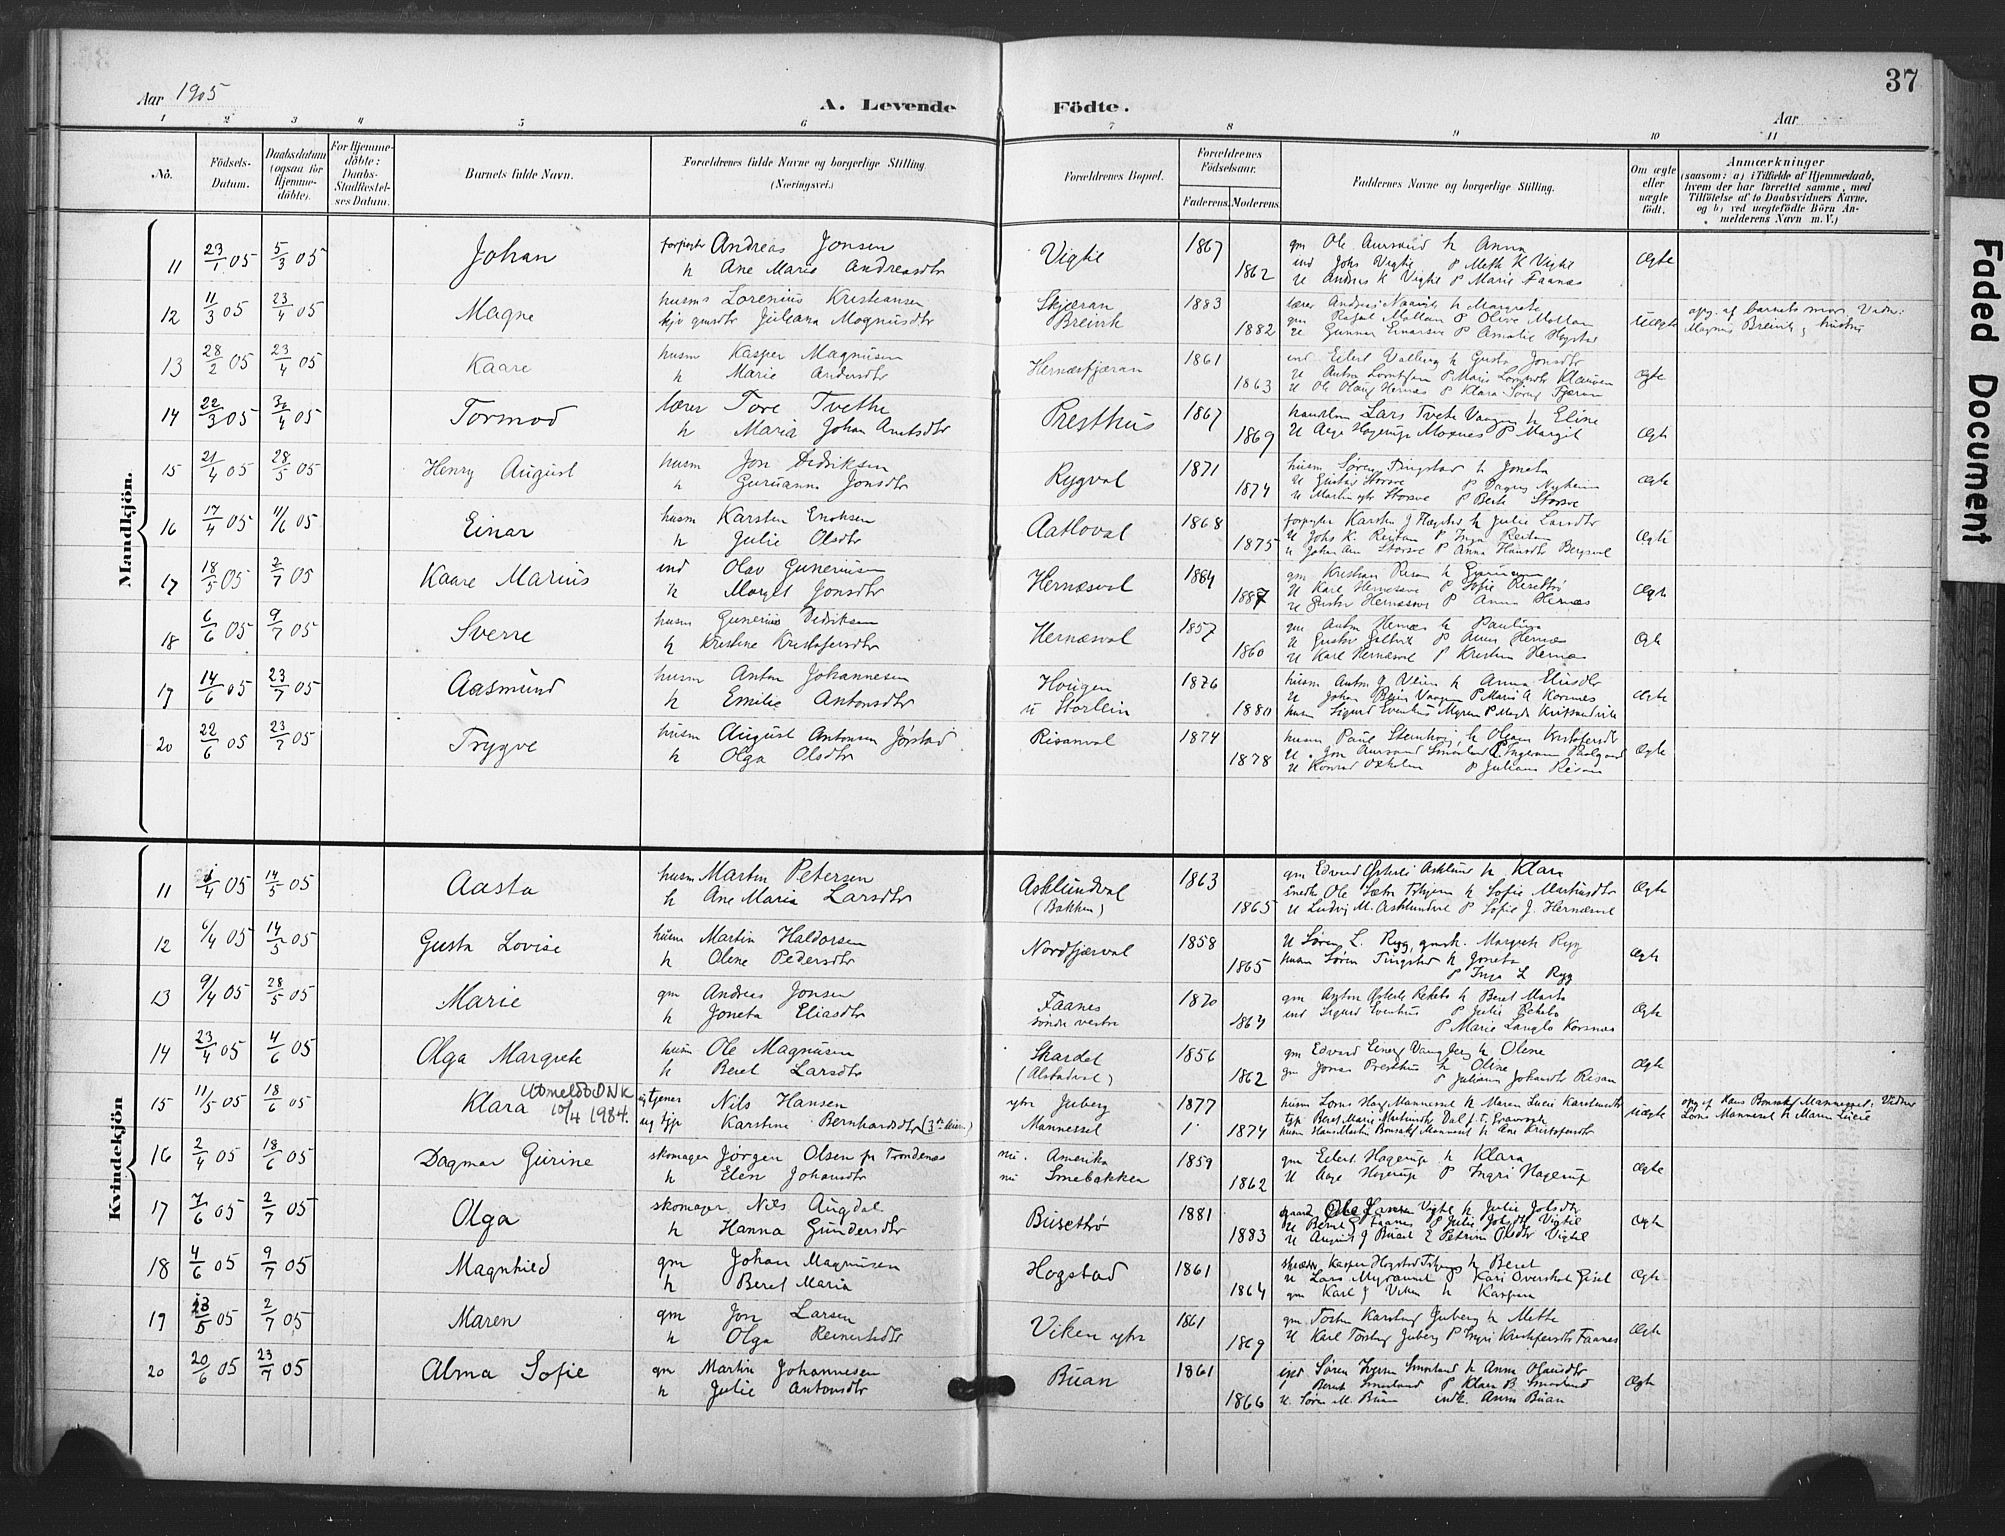 37
Aar 1905
A. Levende Födte.
Aar
1 2 3 4 5 6 7 8 9 10 11
No.
Födsels-Datum.
Daabsdatum (ogsaa for Hjemmedöbte).
For Hjemmedöbte: Daabs-Stadfæstelses Datum.
Barnets fulde Navn.
Forældrenes fulde Navne og borgerlige Stilling.
(Næringsvei.)
Forældrenes Bopæl.
Forældrenes Födselsaar.
Faderens. Moderens.
Faddernes Navne og borgerlige Stilling.
Om ægte eller uægte födt.
Anmærkninger
(saasom: a) i Tilfælde af Hjemmedaab,
hvem der har forrettet samme, med
Tilföielse af to Daabsvidners Navne.
og b) ved uægtefödte Börn An-
melderens Navn m. V.)
Mandkjön.
11 23/1 05 5/3 05 Johan
forpagter Andreas Jonsen
h Ane Marie Andreasdtr
Vigtil 1867 1862
gm Ole Aursand h Anna
ind Johs Vigtil P Meth K Vigtil
U Anders K Vigtil P Marie Faanes
Ægte
12 11/3 05 23/4 05 Magne
husms Lorenius Kristiansen
Juliana Mognusdtr
Skjæran
Breivik
1883 1882
Andreas h Margrete
gm Mollan P Olive Mollan
U Gunnar Einarsve P Amalie
Uægte
opg. af barnets mor. Vidne:
Magnus Breivik og hustru
13 28/2 05 23/4 05 Kaare
husm Kasper Magnusen
h Marie Andersdtr
Hernæsfjæran 1861 1863
ind Eilert Valberg h Gusta Jonsdtr
U Anton P Marie
U Ole Olausg Hernæs P Klara Fjæran
Ægte
14 22/3 05 30/4 05 Tormod
lærer Tore Tvethe
h Maria Johan Arntsdtr
Presthus 1867 1869
Lars Tveth h Eline
U Aage Hagerup Moxnes P Margit
Ægte
15 21/4 05 28/5 05 Henry August
husm Jon Didriksen
h Guruanna Jonsdtr
Rygval 1871 1874
husm Søren Tingstad h Joneta
U Gustav Storsve P Ingeb Nyheim
U Martin ytr Storsve P Berit Storsve
Ægte
16 17/4 05 11/6 05 Einar
husm Karsten Enoksen
h Julie Olsdtr
Aatloval 1868 1875
forpagter Karsten J Hægstad h Julie Larsdtr
U Johs K. Reitan P Inga Reitan
U Johan Storsve P Anna Hansdtr Bergsval
Ægte
17 18/5 05 2/7 05 Kaare Marius
ind Olav Guneriusen
h Marget Jonsdtr
Hernæsval 1884 1887
gm Kristian Risan h
U Karl Hernæsve P Sofie
U Gustav Hernæsve P Anna Hernæs
Ægte
18 6/6 05 9/7 05 Sverre
husm Gunerius Didriksen
h Kristine Kristofersdtr
Hernæsval 1857 1860
gm Anton Hernæs h Paulina
U Gustav P Anna Hernæs
U Karl Hernæsval P Kristine Hernæs
Ægte
19 14/6 05 23/7 05 Aasmund
husm Anton Johannesen
h Emilie Antonsdtr
Hougen
u Størlein
1876 1880
husm Anton J Vein h Anna Eliasdtr
U Johan Vaagen P Marie A Korsnes
husm Sigurd Eventhus Myren P Magda
Ægte
20 22/6 05 23/7 05 Trygve
husm August Antonsen Jørstad
h Olga Olsdtr
Risanval 1874 1878
husm Paul Stenhaug h Olgea Kristofersdtr
U Jon Aursand Smørland P Ingeranna
U Konrad P Juliana Risan
Ægte
Kvindekjön
11 1/4 05 14/5 05 Aasta
husm Martin Petersen
h Ane Maria Larsdtr
Asklundval
(Bakken)
1863 1865
gm Edvard Østerli Asklund h Klara
smed Ole Sæter h Sofie Martinsdtr
U Ludvig M. Asklundval P Sofie J. Hernæsval
Ægte
12 6/4 05 14/5 05 Gusta Lovise
husm Martin Haldorsen
h Olene Pedersdtr
Nordfjærval 1858 1865
U Søren L. Ryg, gmsk. Margrete Ryg
husm Søren Tingstad h Joneta
P Inga L Ryg
Ægte
13 9/4 05 28/5 05 Marie
gm Andreas Jonsen
h Joneta Eliasdtr
Faanes
søndre vestre
1870 1864
gm Anton Østerli Rekebo h Beret Marta
ind Sigurd Eventhus P Julie Rekebo
P Marie Langlo Korsnæs
Ægte
14 23/4 05 4/6 05 Olga Margrete
husm Ole Magnusen
h Beret Larsdtr
Skardet
(Alstadval)
1856 1862
gm Edvard h Olene
gm Jonas Presthus h Oline
P Juliana Johandtr Risan
Ægte
15 11/5 05 18/6 05 Klara
Utmeldt DNK
10/4 1984.
ug tjener Nils Hansen
ug tjp Karstine Bernhardsdtr (3die)
ytr Juberg
Mannessel
1877 1874
husm Lorns Haug Mannessel h Maren Lucie Karstensdtr
tjp Beret Marie
husm Hans Martin Mannessel h Ane Kristofersdtr
uægte
opg af Hans Mannessel: Vidner
Lorns Mannessel h Maren Lucie
16 2/4 05 18/6 05 Dagmar Gurine
skomager Jørgen Olsen fr Trondenæs
h Elen Johansdtr
nu. Amerika
nu Smebakken
1859 1862
gm Eilert Hagerup h Klara
U Aage Hagerup P Ingri Hagerup
Ægte
17 7/6 05 2/7 05 Olga
skomager Nils Augdal
h Hanna Gundersdtr
Busettrø 1881 1883
Ole Larsen Vigtil h Julie Johsdtr
U Beret Faanes P Julie Johsdtr Vigtil
U August J Buseth E Petrine Olsdtr Vigtil
Ægte
18 4/6 05 9/7 05 Magnhild
gm Johan Magnusen
h Beret Maria
Hogstad 1861 1864
skræder Kasper Hogstad h Beret
U Lars Myran P Kari Overskot Gisel
gm Karl J Viken h Kaspara
Ægte
19 23/5 05 2/7 05 Maren
gm Jon Larsen
h Olga Reinertsdtr
Viken ytr 1861 1869
gm Tosten Karstensen Juberg h Mette
U Karl Torsteg Juberg P Ingri Kristofersdtr Faanes
Ægte
20 20/6 05 23/7 05 Alma Sofie
gm Martin Johannesen
h Julie Antonsdtr
Buan 1861 1866
ind Søren Iversen Smorland h Anna
Berit Smorland P Klara B Smorland
U. Søren M. Buan indk. Anna Buan
Ægte
Faded Document